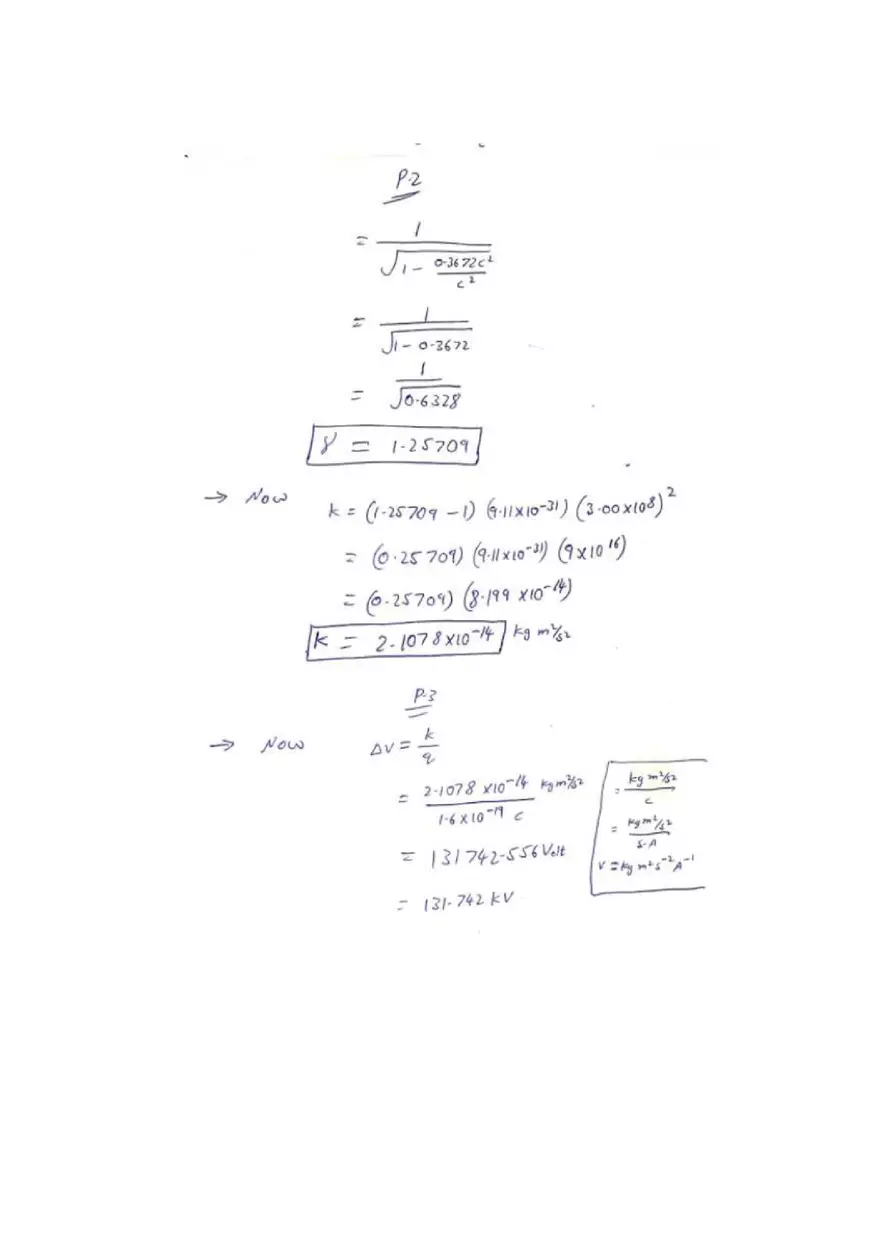 P.2
= 1 / √(1 - 0.3672c² / c²)
= 1 / √(1 - 0.3672)
= 1 / √0.6328
γ = 1.25709
→ Now
k = (1.25709 - 1) (9.11×10⁻³¹) (3.00×10⁸)²
= (0.25709) (9.11×10⁻³¹) (9×10¹⁶)
= (0.25709) (8.199 ×10⁻¹⁴)
k = 2.1078×10⁻¹⁴ kg m²/s²
P.3
→ Now ΔV = k / q
= 2.1078 ×10⁻¹⁴ kg m²/s² / 1.6×10⁻¹⁹ C
= 131742.556 Volt
= 131.742 kV
= kg m²/s² / C
= kg m²/s² / S.A
V = kg m² s⁻² A⁻¹